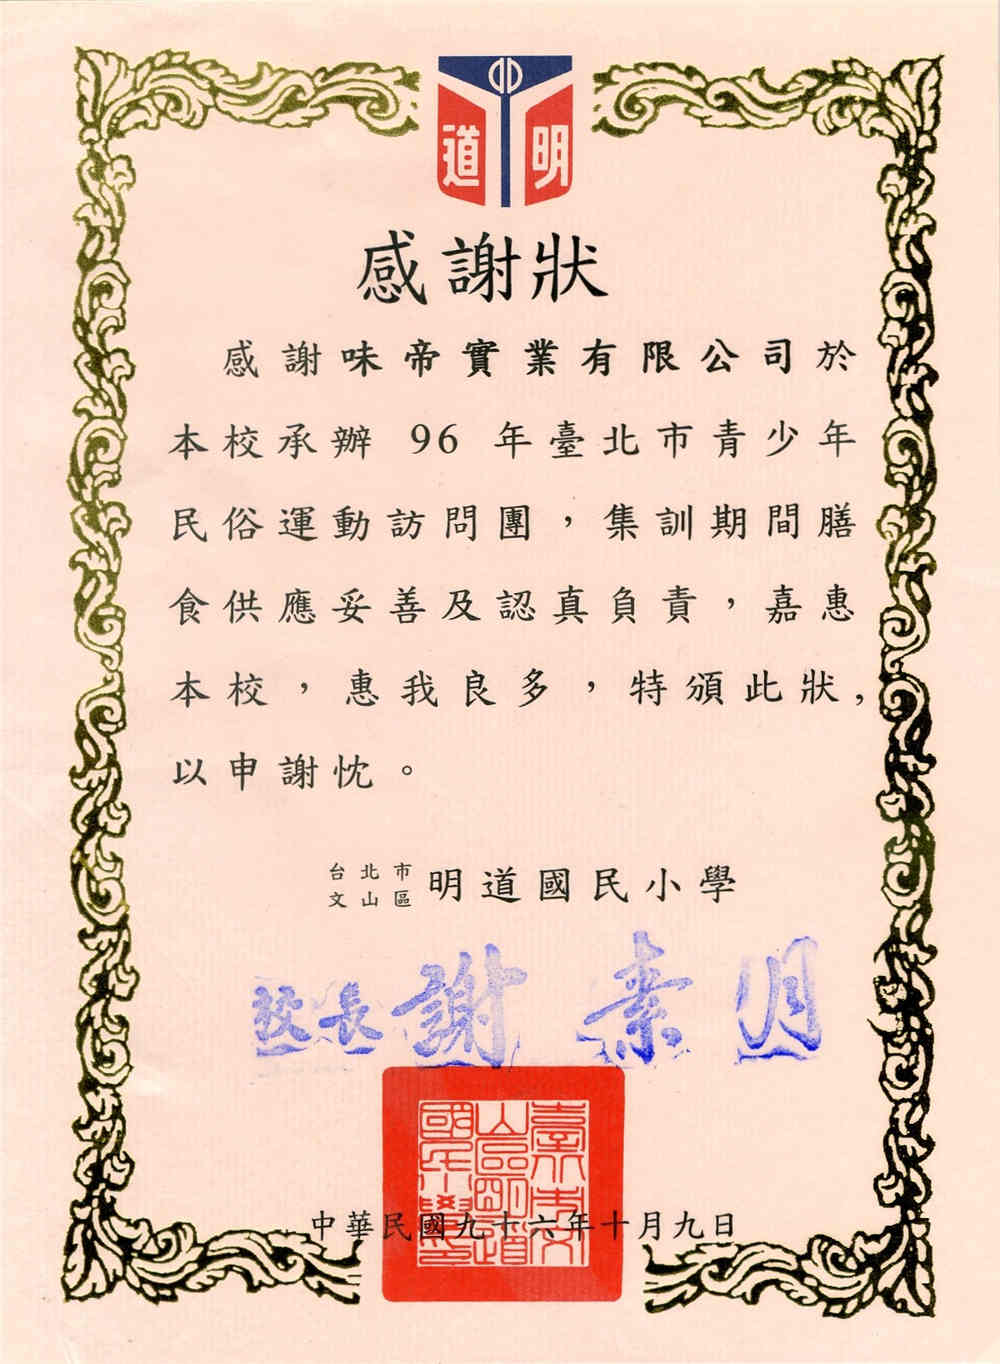 道 明
感謝狀
感謝味帝實業有限公司於
本校承辦 96 年臺北市青少年
民俗運動訪問團，集訓期間膳
食供應妥善及認真負責，嘉惠
本校，惠我良多，特頒此狀，
以申謝忱。
台北市
文山區
明道國民小學
校長 謝素月
臺北市文
山區明道
國民小學印
中華民國九十六年十月九日